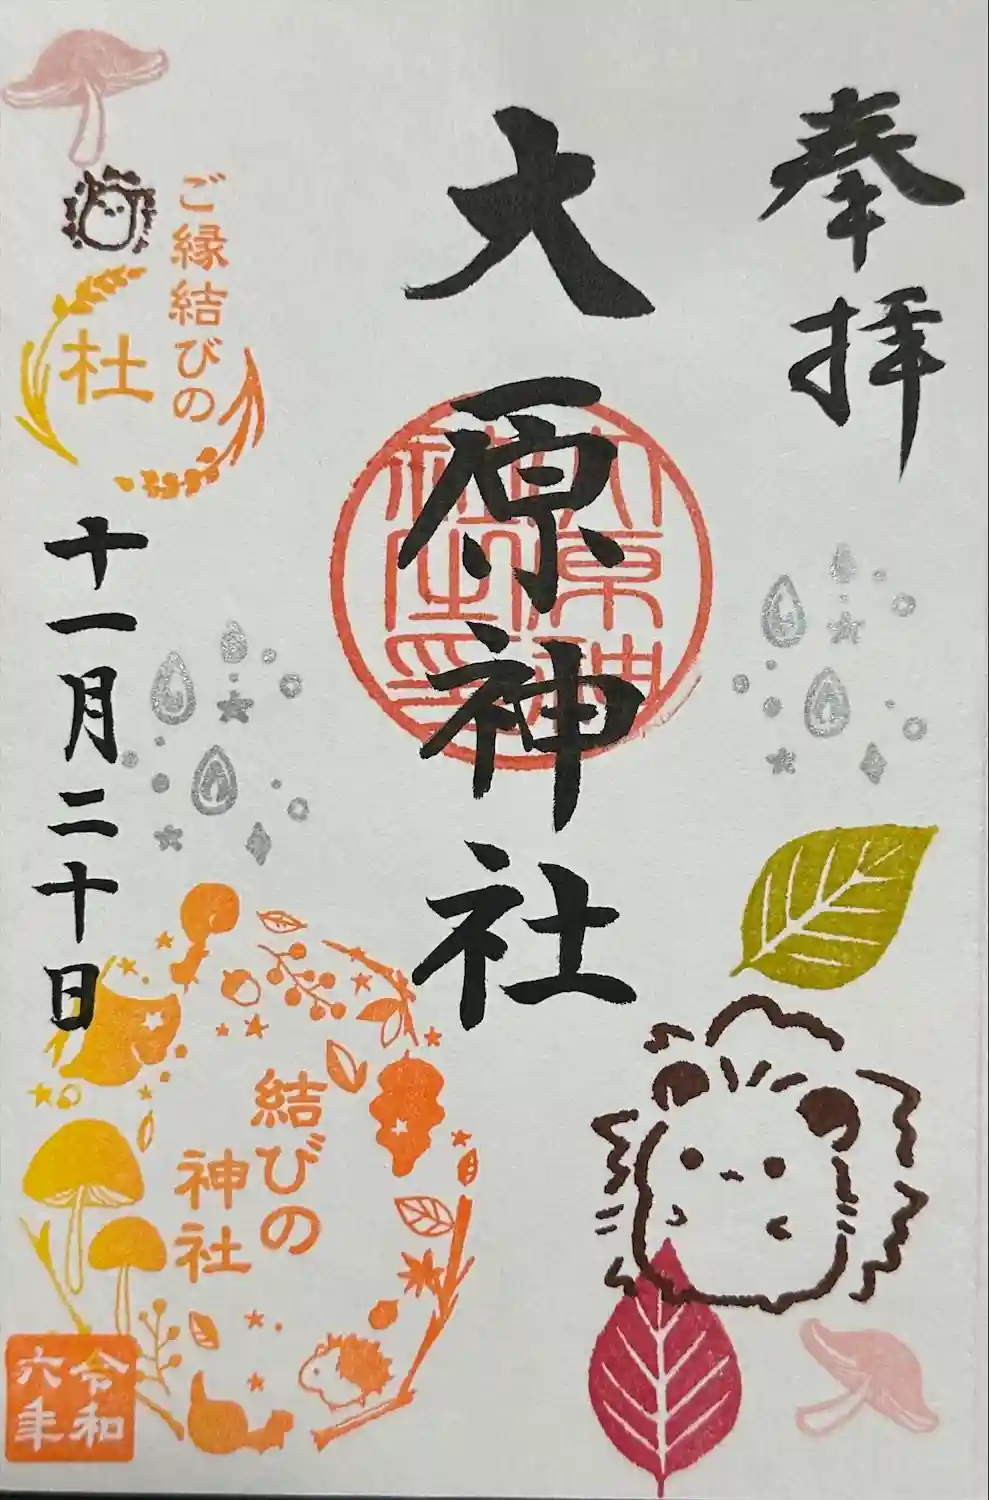 奉拝
大原神社
大原神社之印
ご縁結びの
杜
十一月二十日
結びの
神社
令和
六年